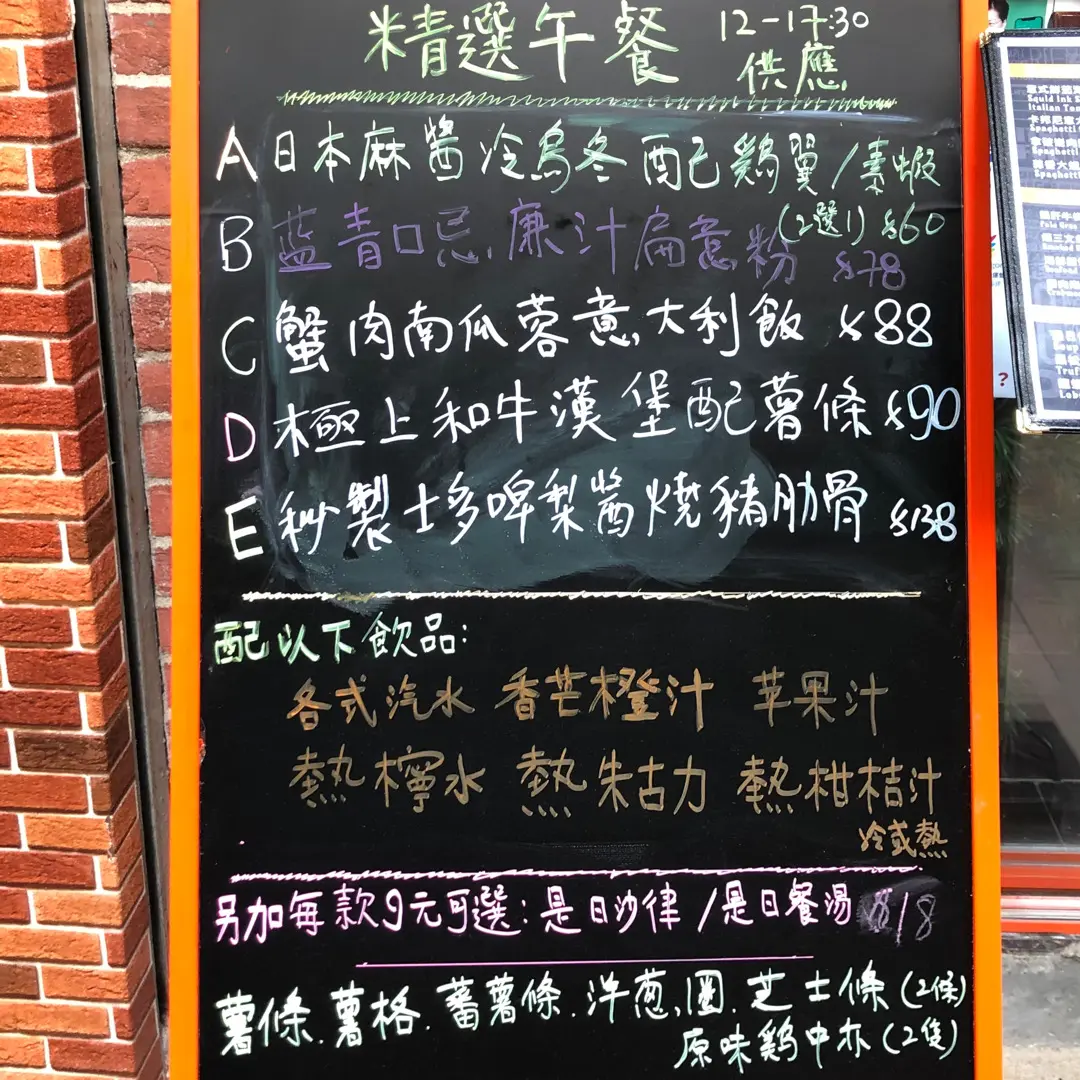 精選午餐 12-17:30
供應
A 日本麻醬冷烏冬 配己鷄翼/素蝦
(2選1) $60
B 藍青口忌廉汁扁意粉 $78
C 蟹肉南瓜蓉意大利飯 $88
D 極上和牛漢堡配薯條 $90
E 秘製士多啤梨醬燒豬肋骨 $138
配以下飲品:
各式汽水 香芒橙汁 苹果汁
熱檸水 熱朱古力 熱柑桔汁
冷或熱
另加每款9元可選:是日沙律/是日餐湯 $18
薯條.薯格.蕃薯條.洋葱圈.芝士條(2條)
原味鷄中亦(2隻)
Squid Ink
Italian
Spaghetti
Spaghetti